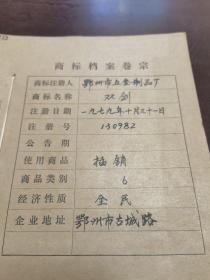 商标档案卷宗
商标注册人 鄂州市五金制品厂
商标名称 双剑
注册日期 一九七九年十月三十一日
注册号 130982
公告期
使用商品 插销
商品类别 6
经济性质 全民
企业地址 鄂州市古城路